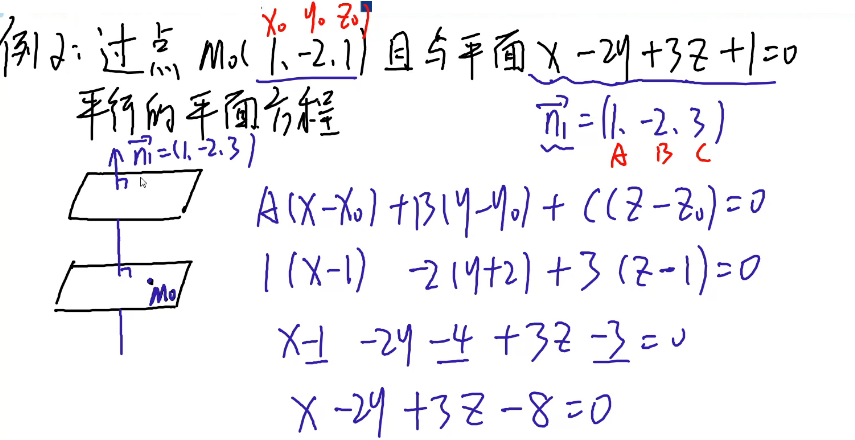 x₀ y₀ z₀)
例2: 过点 M₀(1、-2、1) 且与平面 x-2y+3z+1=0
平行的平面方程
n₁⃗=(1、-2、3)
A B C
n₁⃗=(1、-2、3)
M₀
A(x-x₀)+B(y-y₀)+C(z-z₀)=0
1(x-1) -2(y+2)+3(z-1)=0
x-1 -2y-4+3z-3=0
x-2y+3z-8=0